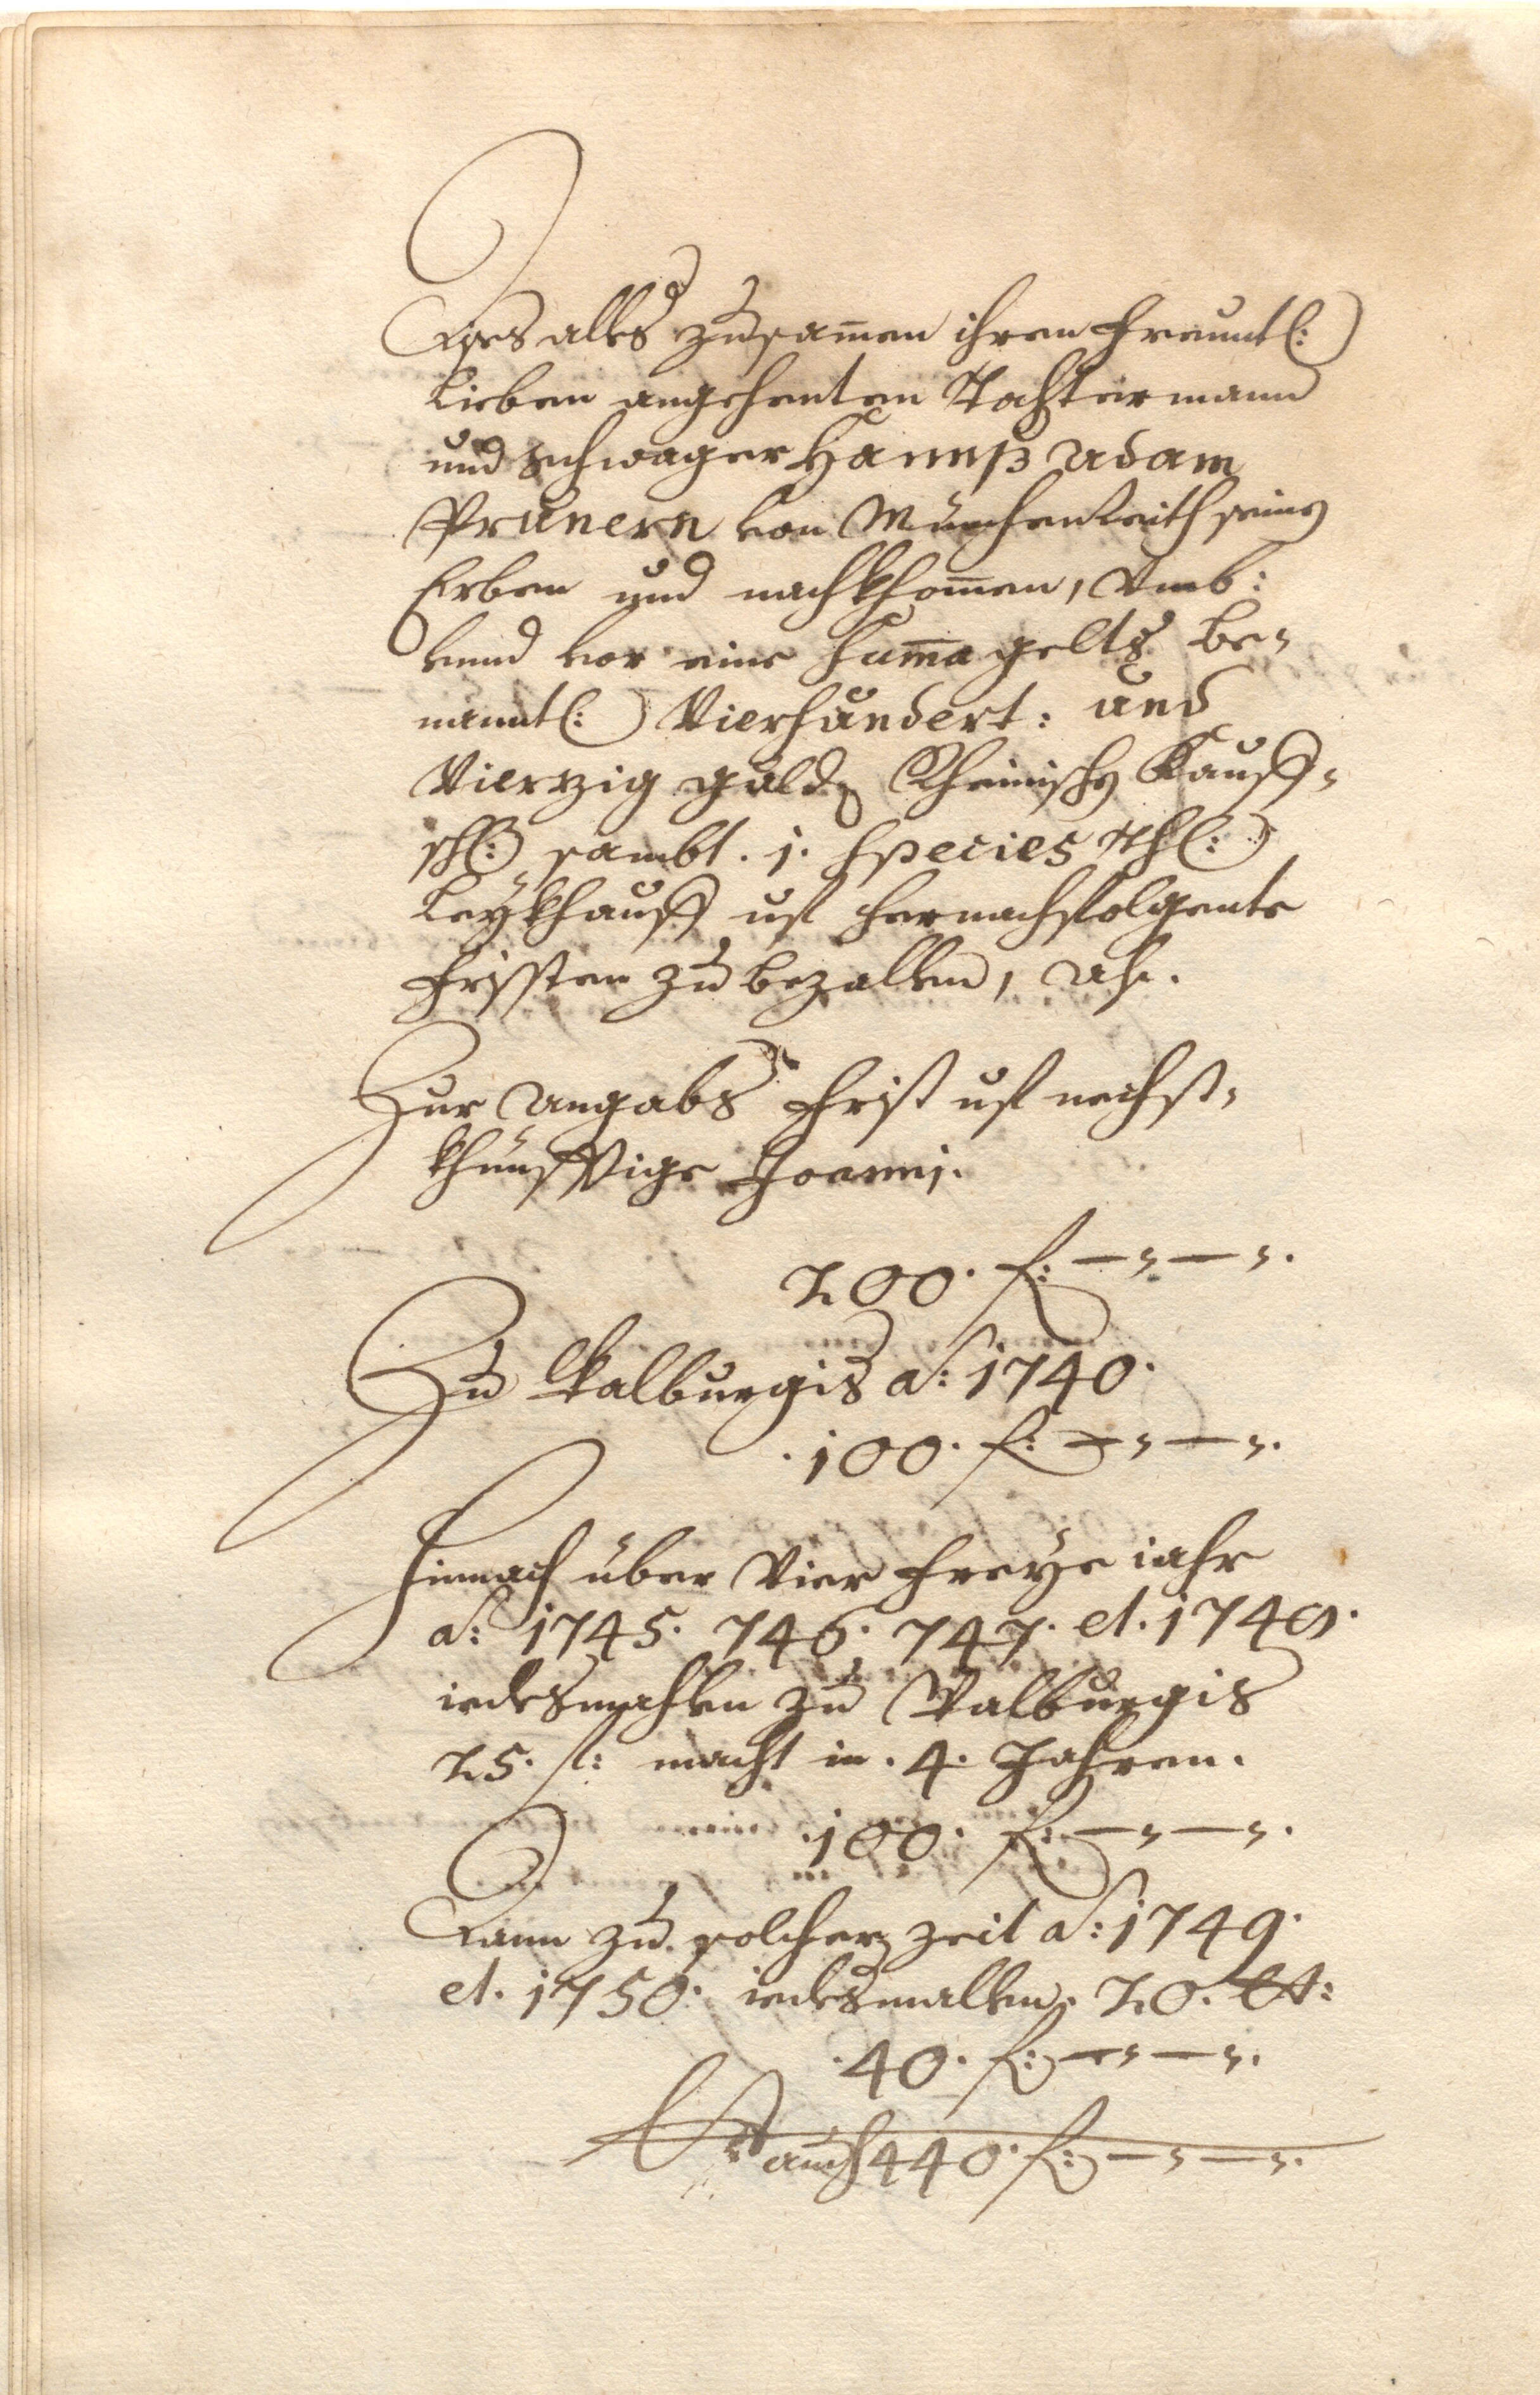 Dises alles zusam̅en ihren freuntl:
Lieben angehenten Tochtermann
und Schwager Hannß Adam
Prunern von Münchenreith seine
Erben und nachkhom̅en, Umb:
vnnd vor eine Sum̅a gelts be-
nanntl: Vierhundert: und
Vierzig guld Rheinisch Kauff-
schl: sambt . 1. Species Thl:
Leykhauff uf hernachfolgente
Fristen zu bezallen, Als.
Zur Angabs Frist uf nechst-
khünfftige Joanni.
200. f: — „ — „.
Zu Walburgis a: 1740.
. 100. f: — „ — „.
Hinnach über Vier Freye iahr
a: 1745. 746. 747. et. 1748.
iedesmahlen zu Walburgis
25. f: macht in . 4. Jahren.
. 100. f: — „ — „.
Dann zu solcher zeit a: 1749.
et. 1750. iedesmallen. 20.
. 40. f: — „ — „.
auch 440. f: — „ — „.